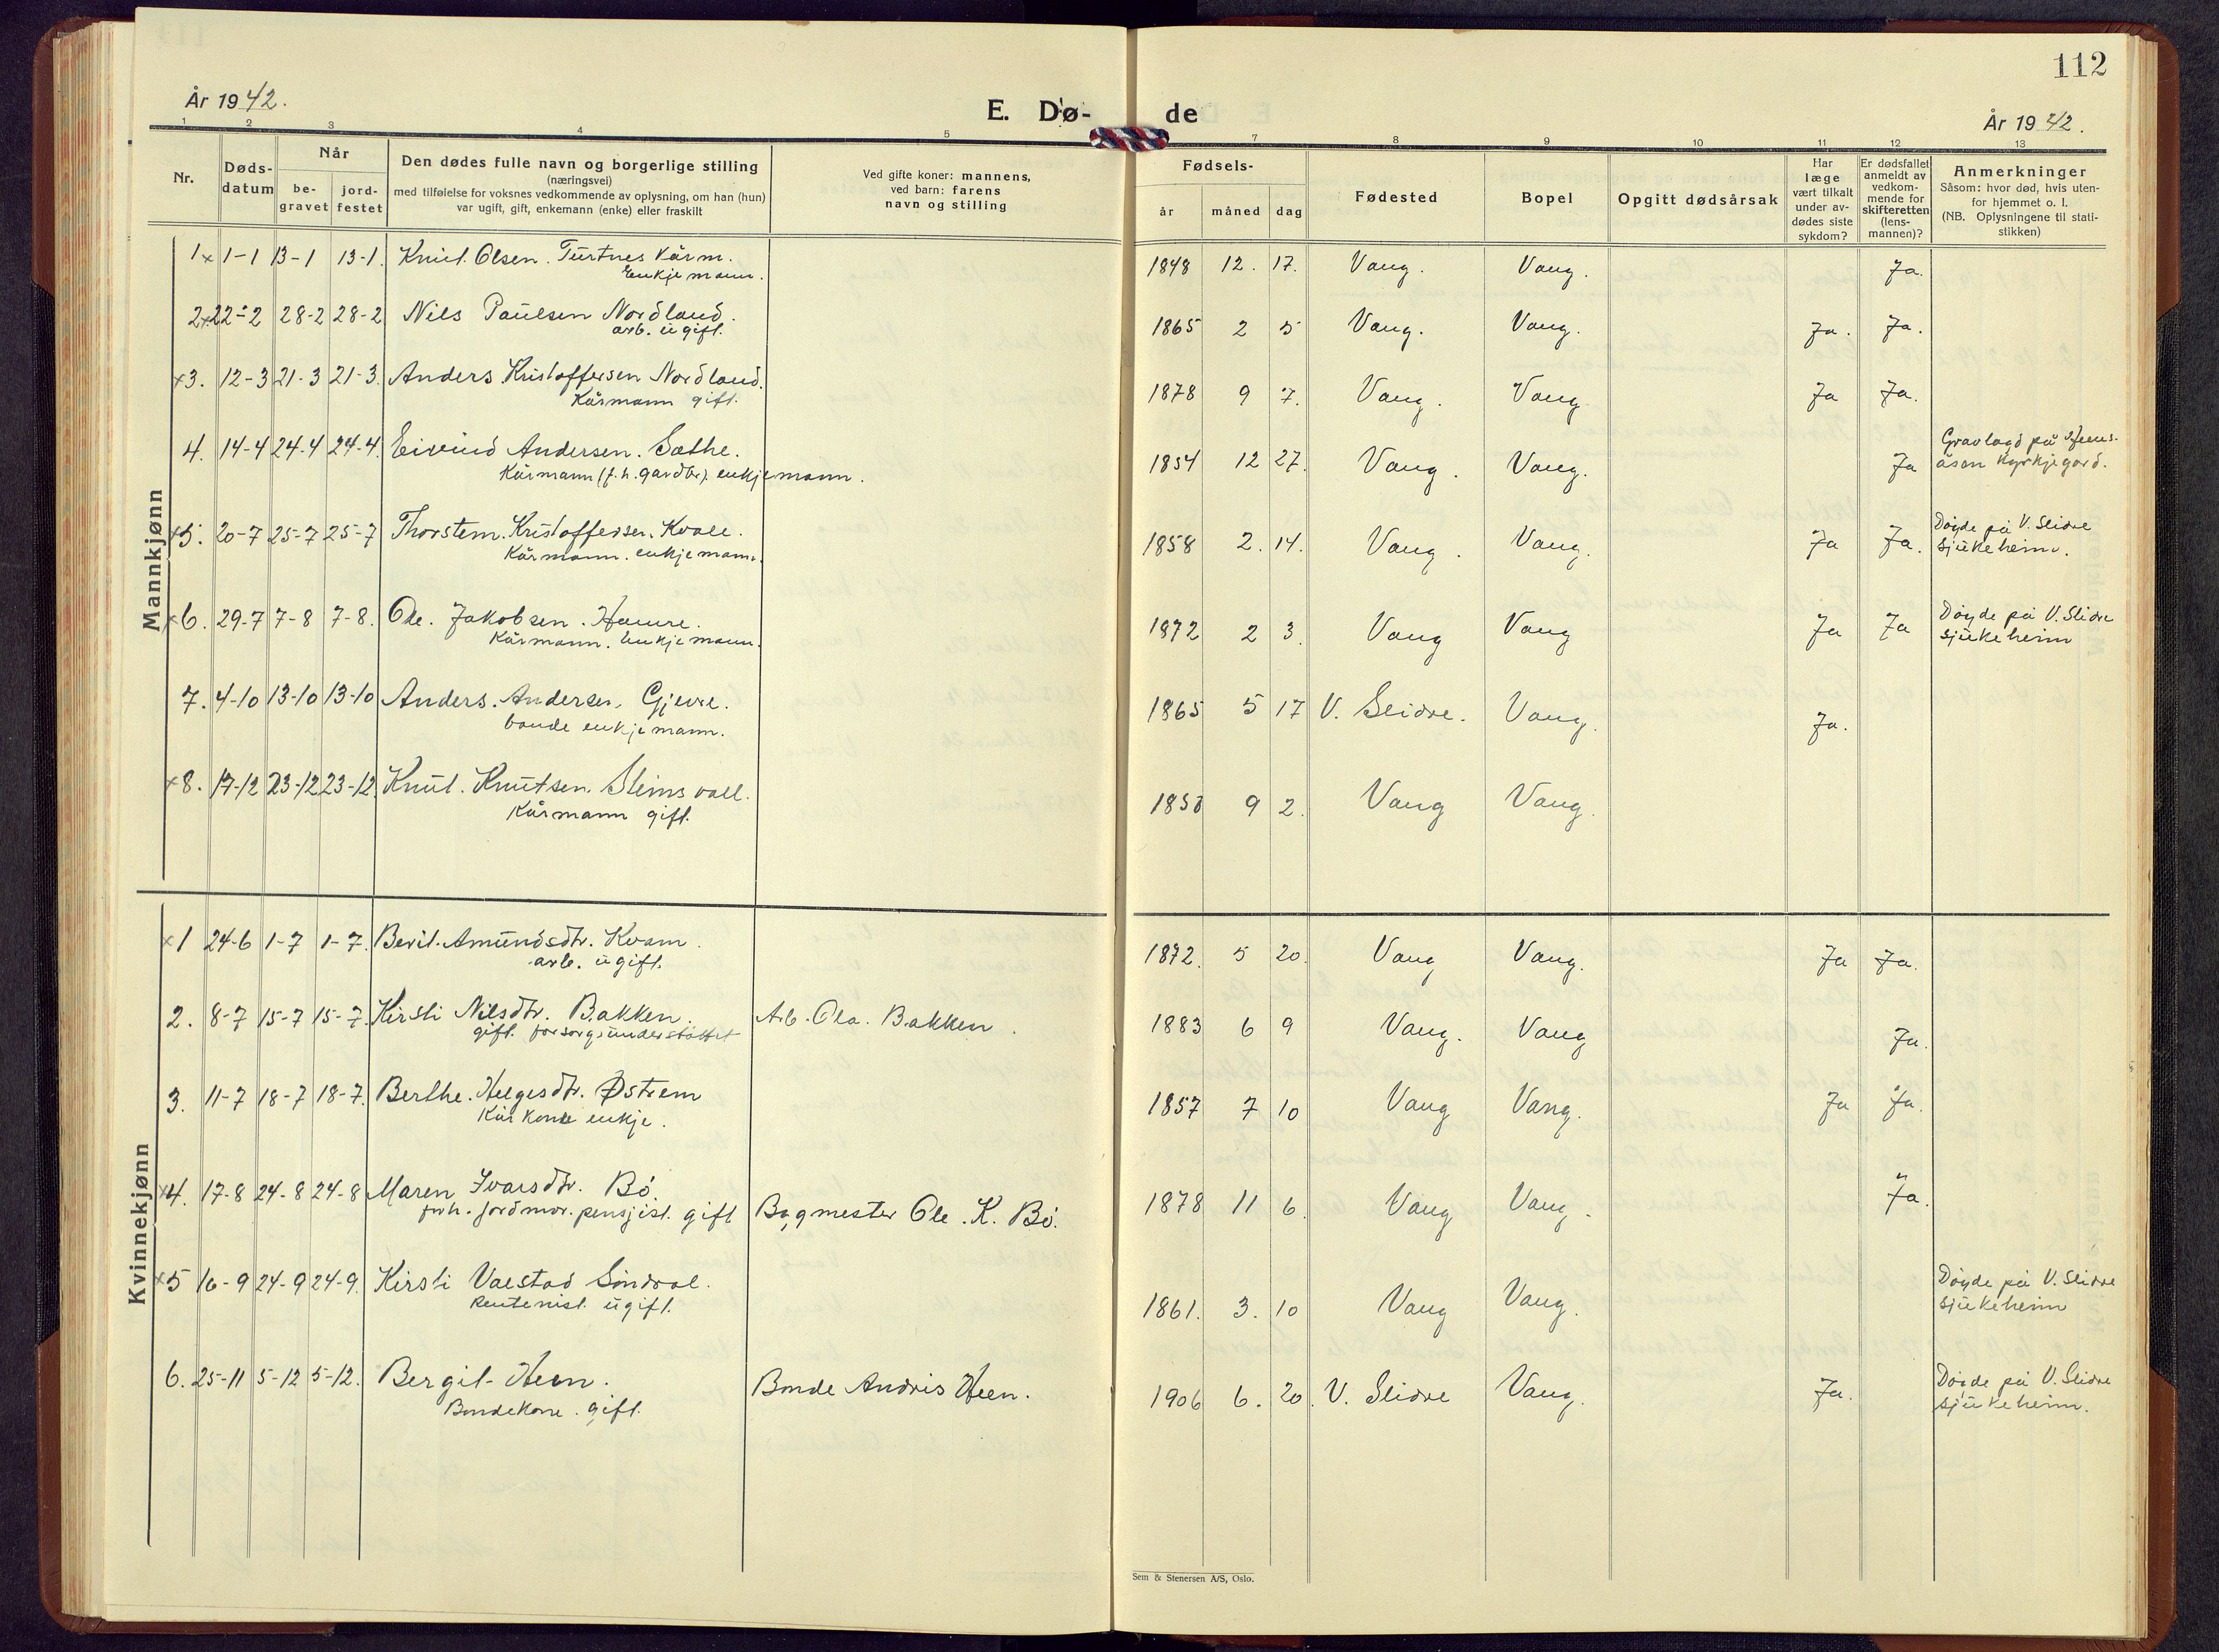 112
År 1942.
E. Dø- de
År 1942.
1 2 3 4 5 7 8 9 10 11 12 13
Nr.
Døds-
datum
Når
be-
gravet
jord-
festet
Den dødes fulle navn og borgerlige stilling
(næringsvei)
med tilføielse for voksnes vedkommende av oplysning, om han (hun)
var ugift, gift, enkemann (enke) eller fraskilt
Ved gifte koner: mannens,
ved barn: farens
navn og stilling
Fødsels-
år måned dag
Fødested
Bopel
Opgitt dødsårsak
Har
læge
vært tilkalt
under av-
dødes siste
sykdom?
Er dødsfallet
anmeldt av
vedkom-
mende for
skifteretten
(lens-
mannen)?
Anmerkninger
Såsom: hvor død, hvis uten-
for hjemmet o. l.
(NB. Oplysningene til stati-
stikken)
Mannkjønn
1 x 1-1 13-1 13-1. Knut Olsen. Turtnes Kårm. 1848 12. 17. Vang. Vang. Ja.
Enkjemann.
2 x 22-2 28-2 28-2 Nils Paulsen Nordland. 1865 2 5 Vang. Vang. Ja. Ja.
arb. ugift.
x3. 12-3 21-3 21-3. Anders Kristoffersen Nordland. 1878 9 7. Vang. Vang Ja Ja.
Kårmann gift.
4. 14-4 24-4 24-4. Eivind Andersen. Sathe. 1854 12 27. Vang. Vang. Ja Gravlagd på
Kårmann (f.h. gardbr). enkjemann. åsen Kyrkjegard.
x5. 20-7 25-7 25-7 Thorstein Kristoffersen. Kvale. 1858 2. 14. Vang. Vang. Ja Ja. Døyde på V. Slidre
Kårmann. enkjemann. sjukeheim.
x6. 29-7 7-8 7-8. Ole. Jakobsen. Hamre. 1872 2 3. Vang Vang Ja Ja Døyde på V. Slidre
Kårmann. Enkjemann. sjukeheim
7. 4-10 13-10 13-10 Anders. Andersen, Gjevre. 1865 5 17 V. Slidre. Vang. Ja.
bonde enkjemann.
x8. 17-12 23-12 23-12. Knut. Knutsen. 9 2. Vang Vang.
Kårmann gift.
Kvinnekjønn
x1 24-6 1-7 1-7. Berit. Amundsdtr. Kvam. 1872. 5 20. Vang Vang. Ja Ja.
arb. ugift.
2. 8-7 15-7 15-7. Kirsti Nilsdtr. Bakken. Arb. Ola. Bakken. 1883 6 9 Vang. Vang Ja.
gift. forsorgsunderstøttet
3. 11-7 18-7 18-7. Berthe. Helgesdtr. Østrem 1857 7 10 Vang Vang. Ja Ja.
Kårkone enkje.
x4. 17-8 24-8 24-8 Maren Ivarsdtr. Bö. 1878 11 6. Vang Vang. Ja.
forh. jordmor. pensjist. gift Bygmester Ole. K. Bö.
x5 16-9 24-9 24-9. Kirsti Valstad Söndrol. 1861. 3. 10 Vang Vang. Døyde på V. Slidre
Rentenist. ugift. sjukeheim
6. 25-11 5-12 5-12. Bergit Heen. Bonde Andris Heen. 1906 6. 20. V. Slidre Vang. Ja. Døyde på V. Slidre
Bondekone. gift. sjukeheim.
Sem & Stenersen A/S, Oslo.